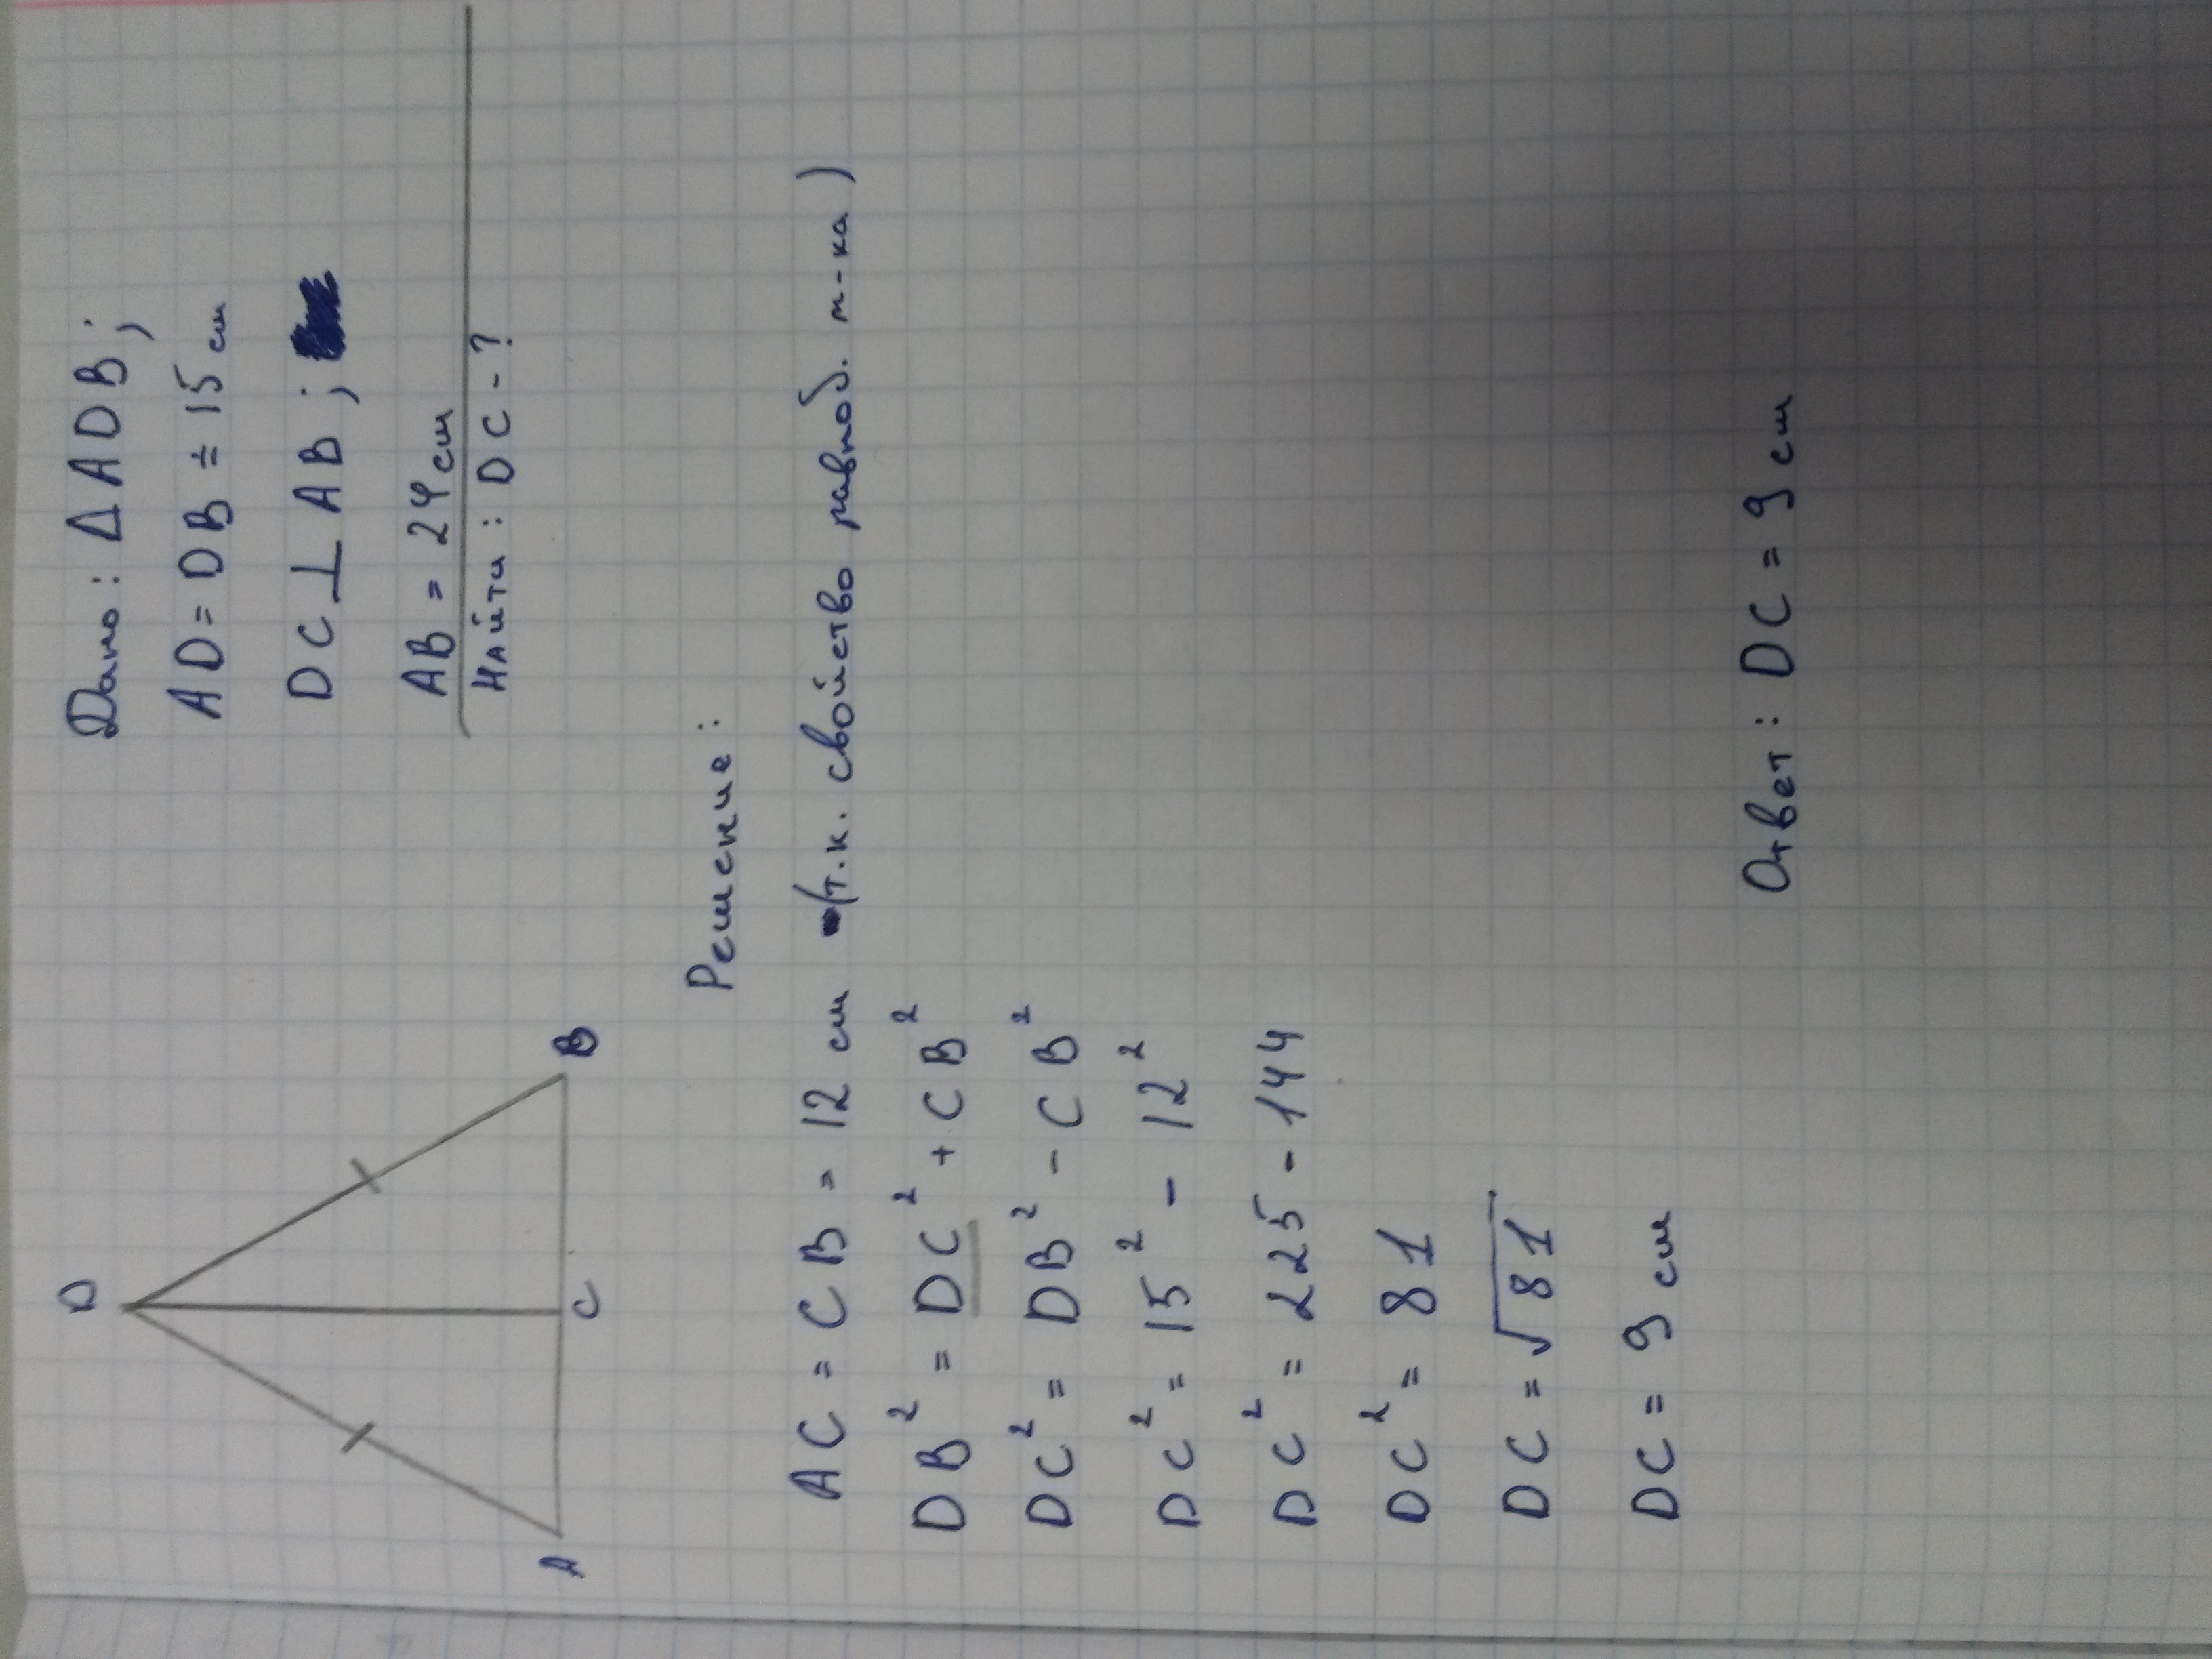 D
A
C
B
Дано: Δ ADB;
AD = DB = 15 см
DC ⊥ AB;
AB = 24 см
Найти: DC - ?
Решение:
AC = CB = 12 см (т.к. свойство равноб. т-ка)
DB² = DC² + CB²
DC² = DB² - CB²
DC² = 15² - 12²
DC² = 225 - 144
DC² = 81
DC = √81
DC = 9 см
Ответ: DC = 9 см